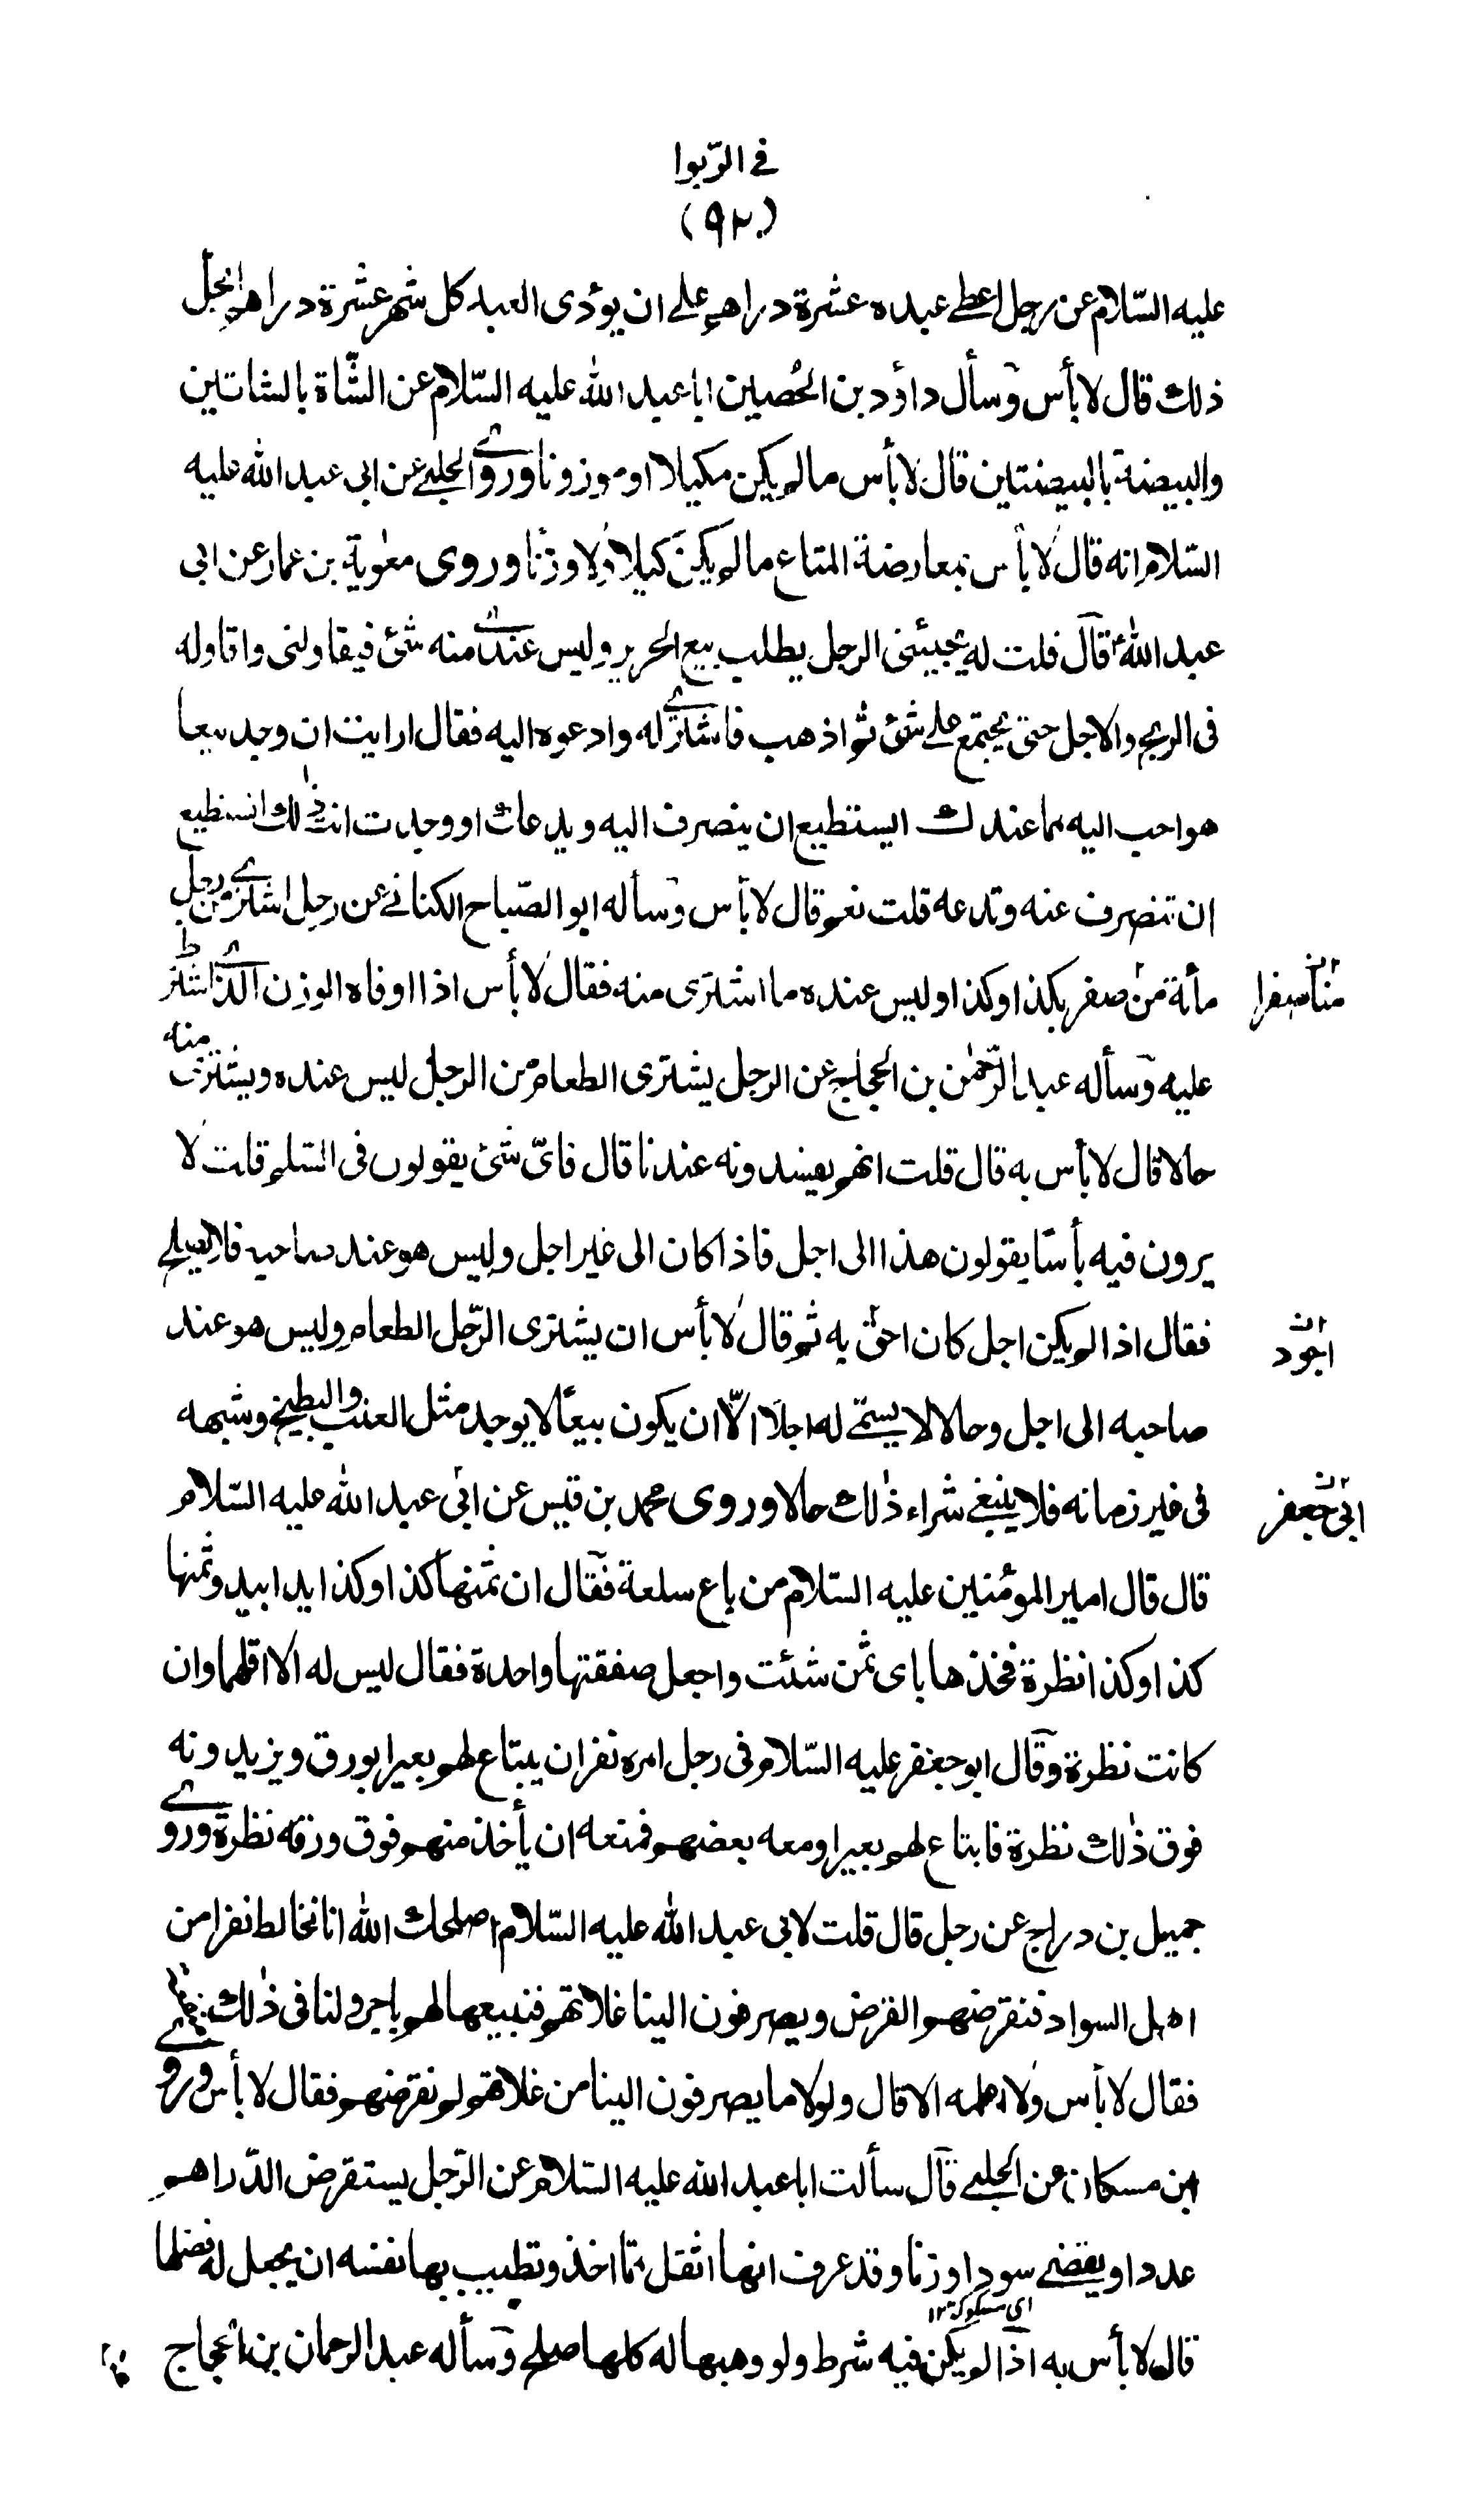 فى الرّبوا
(٩٢)
عليه السّلام عن رجل اعطى عبده عشرة دراهم على ان يؤدى العبد كل شهر عشرة دراهم ايحل
ذلك قال لا بأس وسأل داؤد بن الحُصين ابا عبد الله عليه السّلام عن الشّاة بالشاتين
والبيضة بالبيضتين قال لا بأس ما لم يكن مكيلا او موزونا وروى الحلبى عن ابى عبد الله عليه
السّلام انه قال لا بأس بمعارضة المتاع ما لم يكن كيلا ولا وزنا وروى معٰوية بن عمار عن ابى
عبد الله ع قال قلت له يجيئنى الرجل يطلب بيع الحرير وليس عندى منه شئ فيقاولنى واقاوله
فى الربح والاجل حتى يجتمع على شئ ثم اذهب فاشترى له وادعوه اليه فقال ارايت ان وجد بيعا
هو احب اليه مما عندك ايستطيع ان ينصرف اليه ويدعك او وجدت انت ذلك اتستطيع
ان تنصرف عنه وتدعه قلت نعم قال لا بأس وسأله ابو الصّباح الكنانى عن رجل اشترى من رجل
مأة منّ صفر بكذا وكذا وليس عنده ما اشترى منه فقال لا بأس اذا اوفاه الوزن الذى اشترط
منًا صفرا
عليه وسأله عبد الرّحمٰن بن الحجاج عن الرجل يشترى الطعام من الرجل ليس عنده ويشترى منه
حالا قال لا بأس به قال قلت انهم يفسدونه عندنا قال فاىّ شئ يقولون فى السّلم قلت لا
يرون فيه بأسًا يقولون هذا الى اجل فاذا كان الى غير اجل وليس هو عند صاحبه فلا يصلح
فقال اذا لم يكن اجل كان احقّ به ثم قال لا بأس ان يشترى الرّجل الطعام وليس هو عند
اجود
صاحبه الى اجل وحالا لا يسمّى له اجلا الّا ان يكون بيعًا لا يوجد مثل العنب والبطيخ وشبهه
فى غير زمانه فلا ينبغى شراء ذٰلك حالا وروى محمد بن قيس عن ابى عبد الله عليه السّلام
ابى جعفر
قال قال امير المؤمنين عليه السّلام من باع سلعة فقال ان ثمنها كذا وكذا يدا بيد وثمنها
كذا وكذا نظرة فخذها باى ثمن شئت واجعل صفقتها واحدة فقال ليس له الا اقلهما وان
كانت نظرة وقال ابو جعفر عليه السّلام فى رجل امره نفر ان يبتاع لهم بعيرا بورق ويزيدونه
فوق ذٰلك نظرة فابتاع لهم بعيرا ومعه بعضهم فمنعه ان يأخذ منهم فوق ورقه نظرة وروى
جميل بن دراج عن رجل قال قلت لابى عبد الله عليه السّلام اصلحك الله انا نخالط نفرا من
اهل السواد فنقرضهم القرض ويصرفون الينا غلاتهم فنبيعها لهم باجر ولنا فى ذٰلك
فقال لا بأس ولا اعلمه الا قال ولولا ما يصرفون الينا من غلاتهم لم نقرضهم فقال لا بأس وروى
ابن مسكان عن الحلبى قال سألت ابا عبد الله عليه السّلام عن الرّجل يستقرض الدّراهم
عددا ويقضى سودا وزنا وقد عرف انها اثقل مما اخذ وتطيب بها نفسه ان يجعل له فضلها
اى مسكوكة ١٢
قال لا بأس به اذا لم يكن فيه شرط ولو وهبها له كلها صلح وسأله عبد الرحمان بن الحجاج